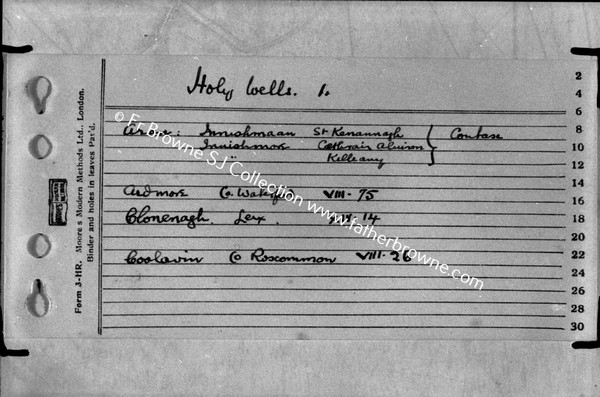 Holy Wells. 1.
Aran: Innishmaan St Kenannagh
Innishmore
" Killeany
Ardmore Co. VIII-75
Clonenagh Leix 14
Coolavin Co Roscommon VIII-26
© Fr Browne SJ Collection www.fatherbrowne.com
Form 3-HR. Moore's Modern Methods Ltd., London.
Binder and holes in leaves Pat'd.
2
4
6
8
10
12
14
16
18
20
22
24
26
28
30